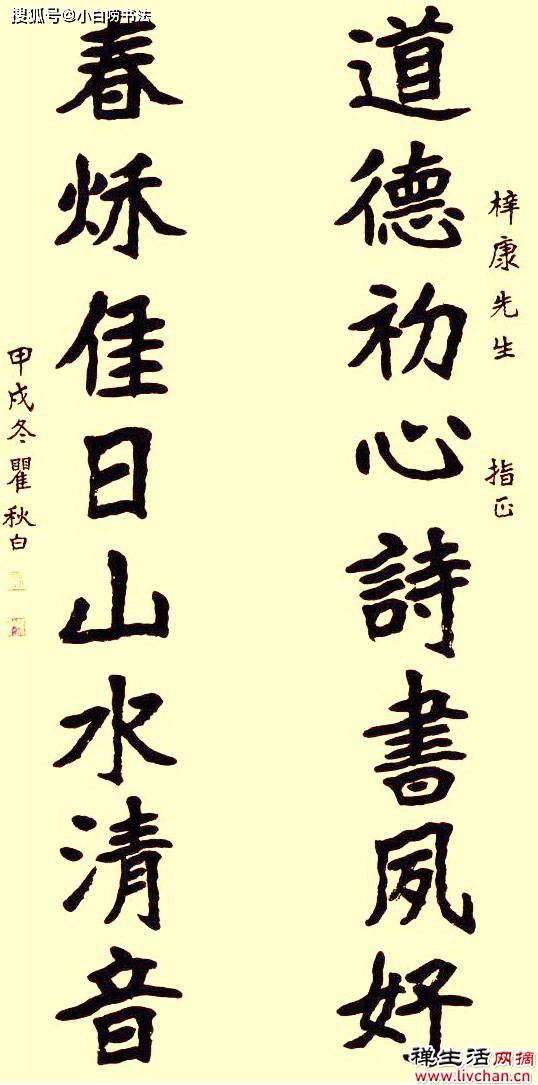 搜狐号@小白唠书法
梓康先生 指正
道德初心詩書夙好
春秌佳日山水清音
甲戌冬瞿秋白
禅生活网摘
www.livchan.cn